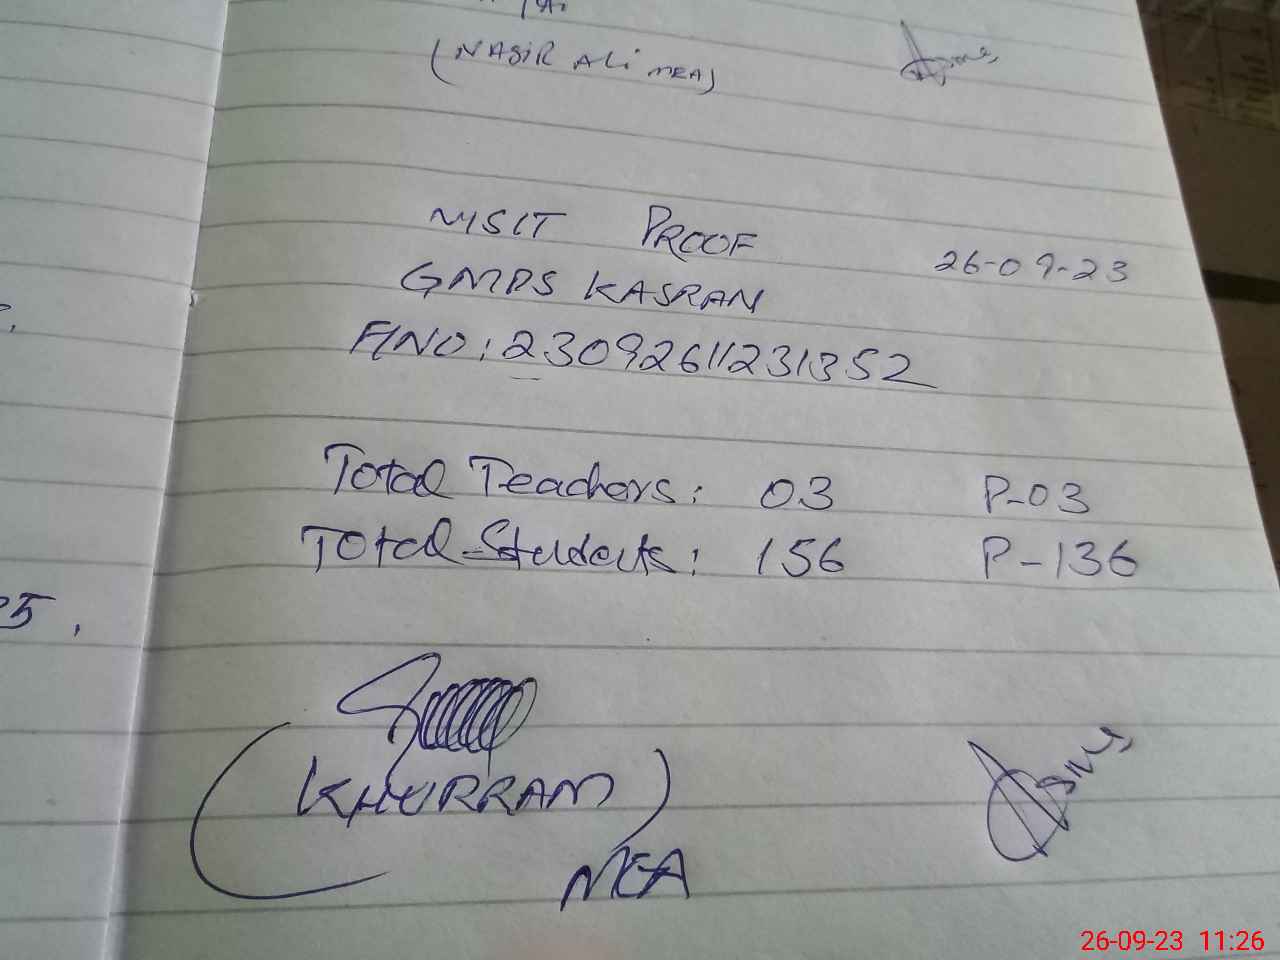 (NASIR ALI MEA)
VISIT PROOF
26-09-23
GMPS KASRAN
F/NO: 23092611231352
Total Teachers: 03 P-03
Total Students: 156 P-136
(KHURRAM)
MEA
26-09-23 11:26